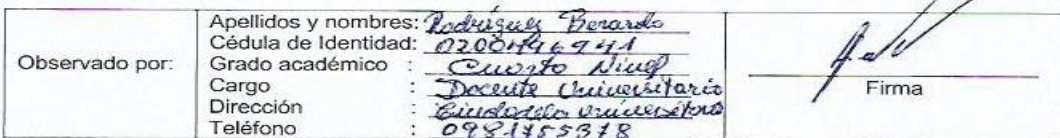 Observado por:
Apellidos y nombres: Rodríguez Berardo
Cédula de Identidad:
Grado académico : Cuarto Nivel
Cargo : Docente Universitario
Dirección : Ciudadela Universitaria
Teléfono : 0981755378
Firma